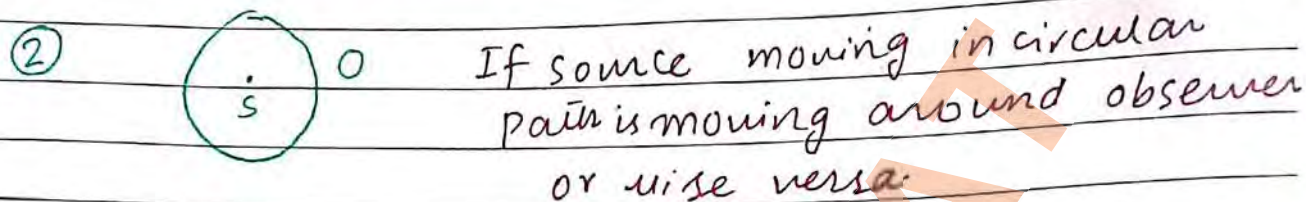 ② S O If source moving in circular
path is moving around observer
or vise versa.